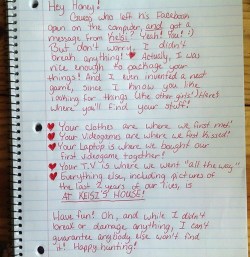 Hey Honey!
Guess who left his Facebook
open on the computer, and got a
message from KEISI? Yeah! You! :)
But don't worry, I didn't
break anything! ♥ Actually, I was
nice enough to package your
things! And I even invented a neat
game, since I know you like
looking for things like other girls! Here's
where you'll find your stuff!
♥ Your clothes are where we first met!
♥ Your Videogames are where we first kissed!
♥ Your Laptop is where we bought our
first videogame together!
♥ Your T.V. is where we went "all the way."
♥ Everything else, including pictures of
the last 2 years of our lives, is
AT KEISI'S HOUSE!
Have fun! Oh, and while I didn't
break or damage anything, I can't
guarantee anybody else won't find
it! Happy hunting!